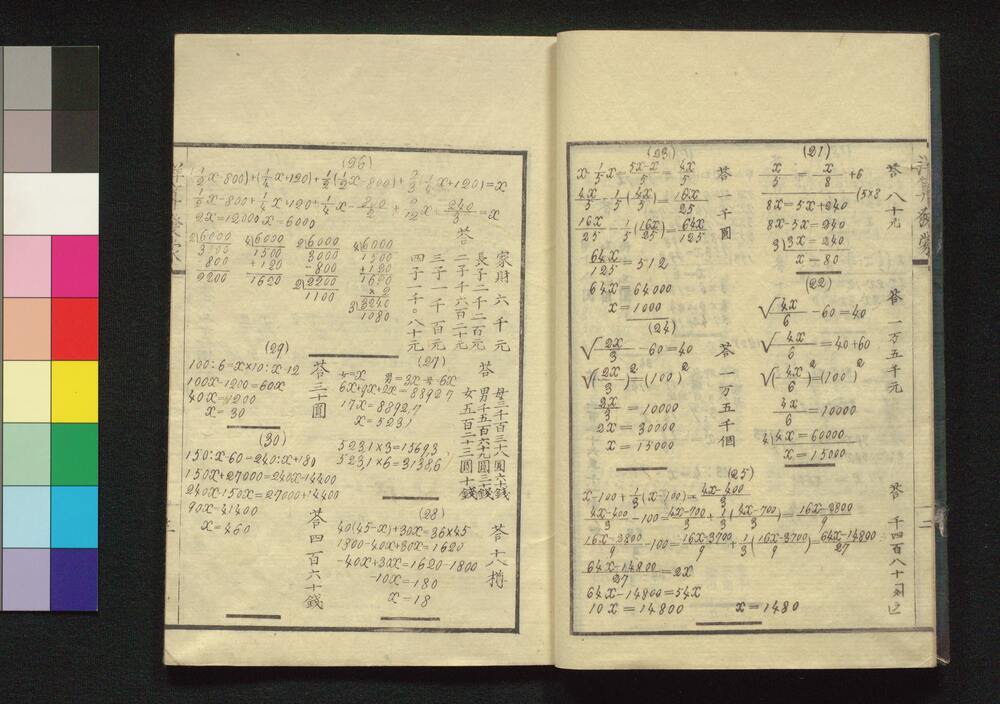 (21)
x/5 = x/8 + 6
(5×8
8x = 5x + 240
8x - 5x = 240
3)3x = 240
x = 80
答 八十元
(22)
√4x/6 - 60 = 40
√4x/6 = 40 + 60
√(4x/6)² = (100)²
4x/6 = 10000
4)4x = 60000
x = 15000
答 一万五千元
(23)
x - 1/5 x = 5x-x/5 = 4x/5
4x/5 - 1/5(4x/5) = 16x/25
16x/25 - 1/5(16x/25) = 64x/125
64x/125 = 512
64x = 64000
x = 1000
答 一千圓
(24)
√2x/3 - 60 = 40
√(2x/3)² = (100)²
2x/3 = 10000
2x = 30000
x = 15000
答 一万五千個
(25)
x-100 + 1/3(x-100) = 4x-400/3
4x-400/3 - 100 = 4x-700/3 + 1/3(4x-700/3) = 16x-2800/9
16x-2800/9 - 100 = 16x-3700/9 + 1/3(16x-3700/9) = 64x-14800/27
64x-14800/27 = 2x
64x - 14800 = 54x
10x = 14800 x = 1480
答 千四百八十
二
(26)
(1/2 x-800)+(1/4 x+120)+1/2(1/2 x-800)+2/3(1/4 x+120)=x
1/2 x-800+1/4 x+120+1/4 x-800/2+2/12 x+240/3=x
2x=12000 x=6000
2)6000
3000
800
2200
4)6000
1500
+120
1620
2)6000
3000
-800
2)2200
1100
4)6000
1500
+120
1620
×2
3)3240
1080
答
家財六千元
長子二千二百元
二子千六百二十元
三子一千一百元
四子一千〇八十元
(27)
女=x 男=3x 母=6x
6x+9x+2x=8892,7
17x=8892,7
x=523,1
523,1×3=1569,3
523,1×6=3138,6
答
母三千百三十八圓六十錢
男千五百六十九圓三十錢
女五百二十三圓十錢
(28)
40(45-x)+30x=36×45
1800-40x+30x=1620
-40x+30x=1620-1800
-10x=180
x=18
答 十八樽
(29)
100:6=x×10:x-12
100x-1200=60x
40x=1200
x=30
答 三十圓
(30)
150:x-60=240:x+180
150x+27000=240x-14400
240x-150x=27000+14400
90x=41400
x=460
答 四百六十錢